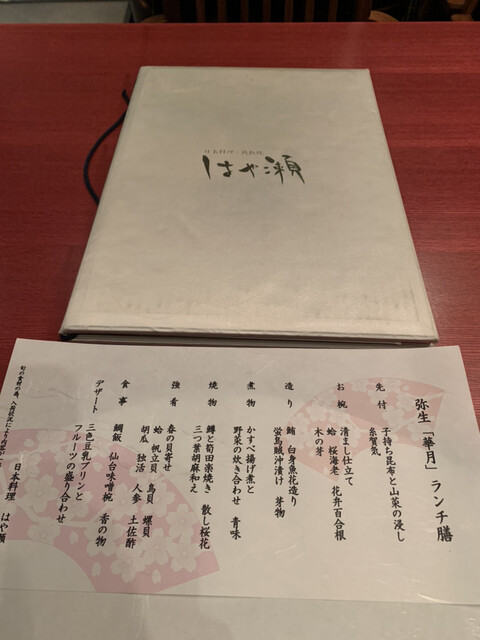 日本料理・鉄板焼
はや瀬
弥生「華月」ランチ膳
先付 子持ち昆布と山菜の浸し
糸賀気
お椀 清まし仕立て
蛤 桜海老 花弁百合根
木の芽
造り 鮪 白身魚花造り
蛍烏賊沖漬け 芽物
煮物 かすべ揚げ煮と
野菜の炊き合わせ 青味
焼物 鱒と筍田楽焼き 散し桜花
三つ葉胡麻和え
強肴 春の貝寄せ
蛤 帆立貝 鳥貝 螺貝
胡瓜 独活 人参 土佐酢
食事 鯛飯 仙台味噌椀 香の物
デザート 三色豆乳プリンと
フルーツの盛り合わせ
旬の食材の為、入荷状況により
日本料理 はや瀬